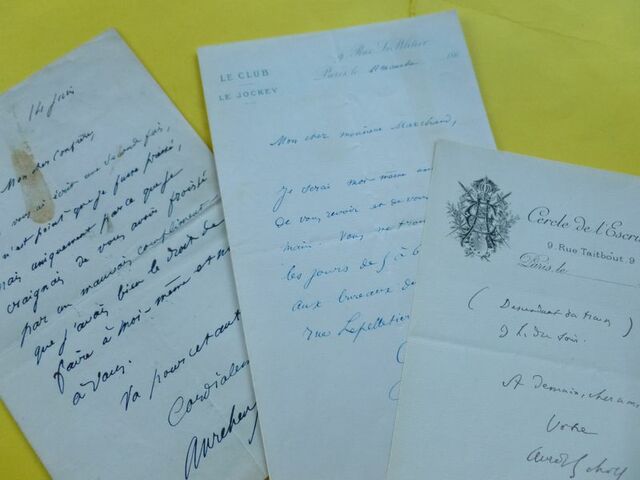 14 Juin
Mon cher Confrère,
écrit une seconde fois,
n'est point que je fusse pressé,
mais uniquement parce que je
craignais de vous avoir froissé
par un mauvais compliment
que j'avais bien le droit de
faire à moi-même et
à vous.
Va pour cet aut
Cordialem
Aurélien
LE CLUB
LE JOCKEY
9 Rue Le Peletier
Paris, le
Mon cher monsieur Marchand,
Je serai moi-même
de vous revoir et de vous
main. Vous me trou
les jours de 5 à 6
aux bureaux de
rue Lepelletier
Cercle de l'Escri
9. Rue Taitbout. 9
Paris, le
( Descendant du train )
9 h. du soir.
A demain, cher ami,
Votre
Aurél Scholl